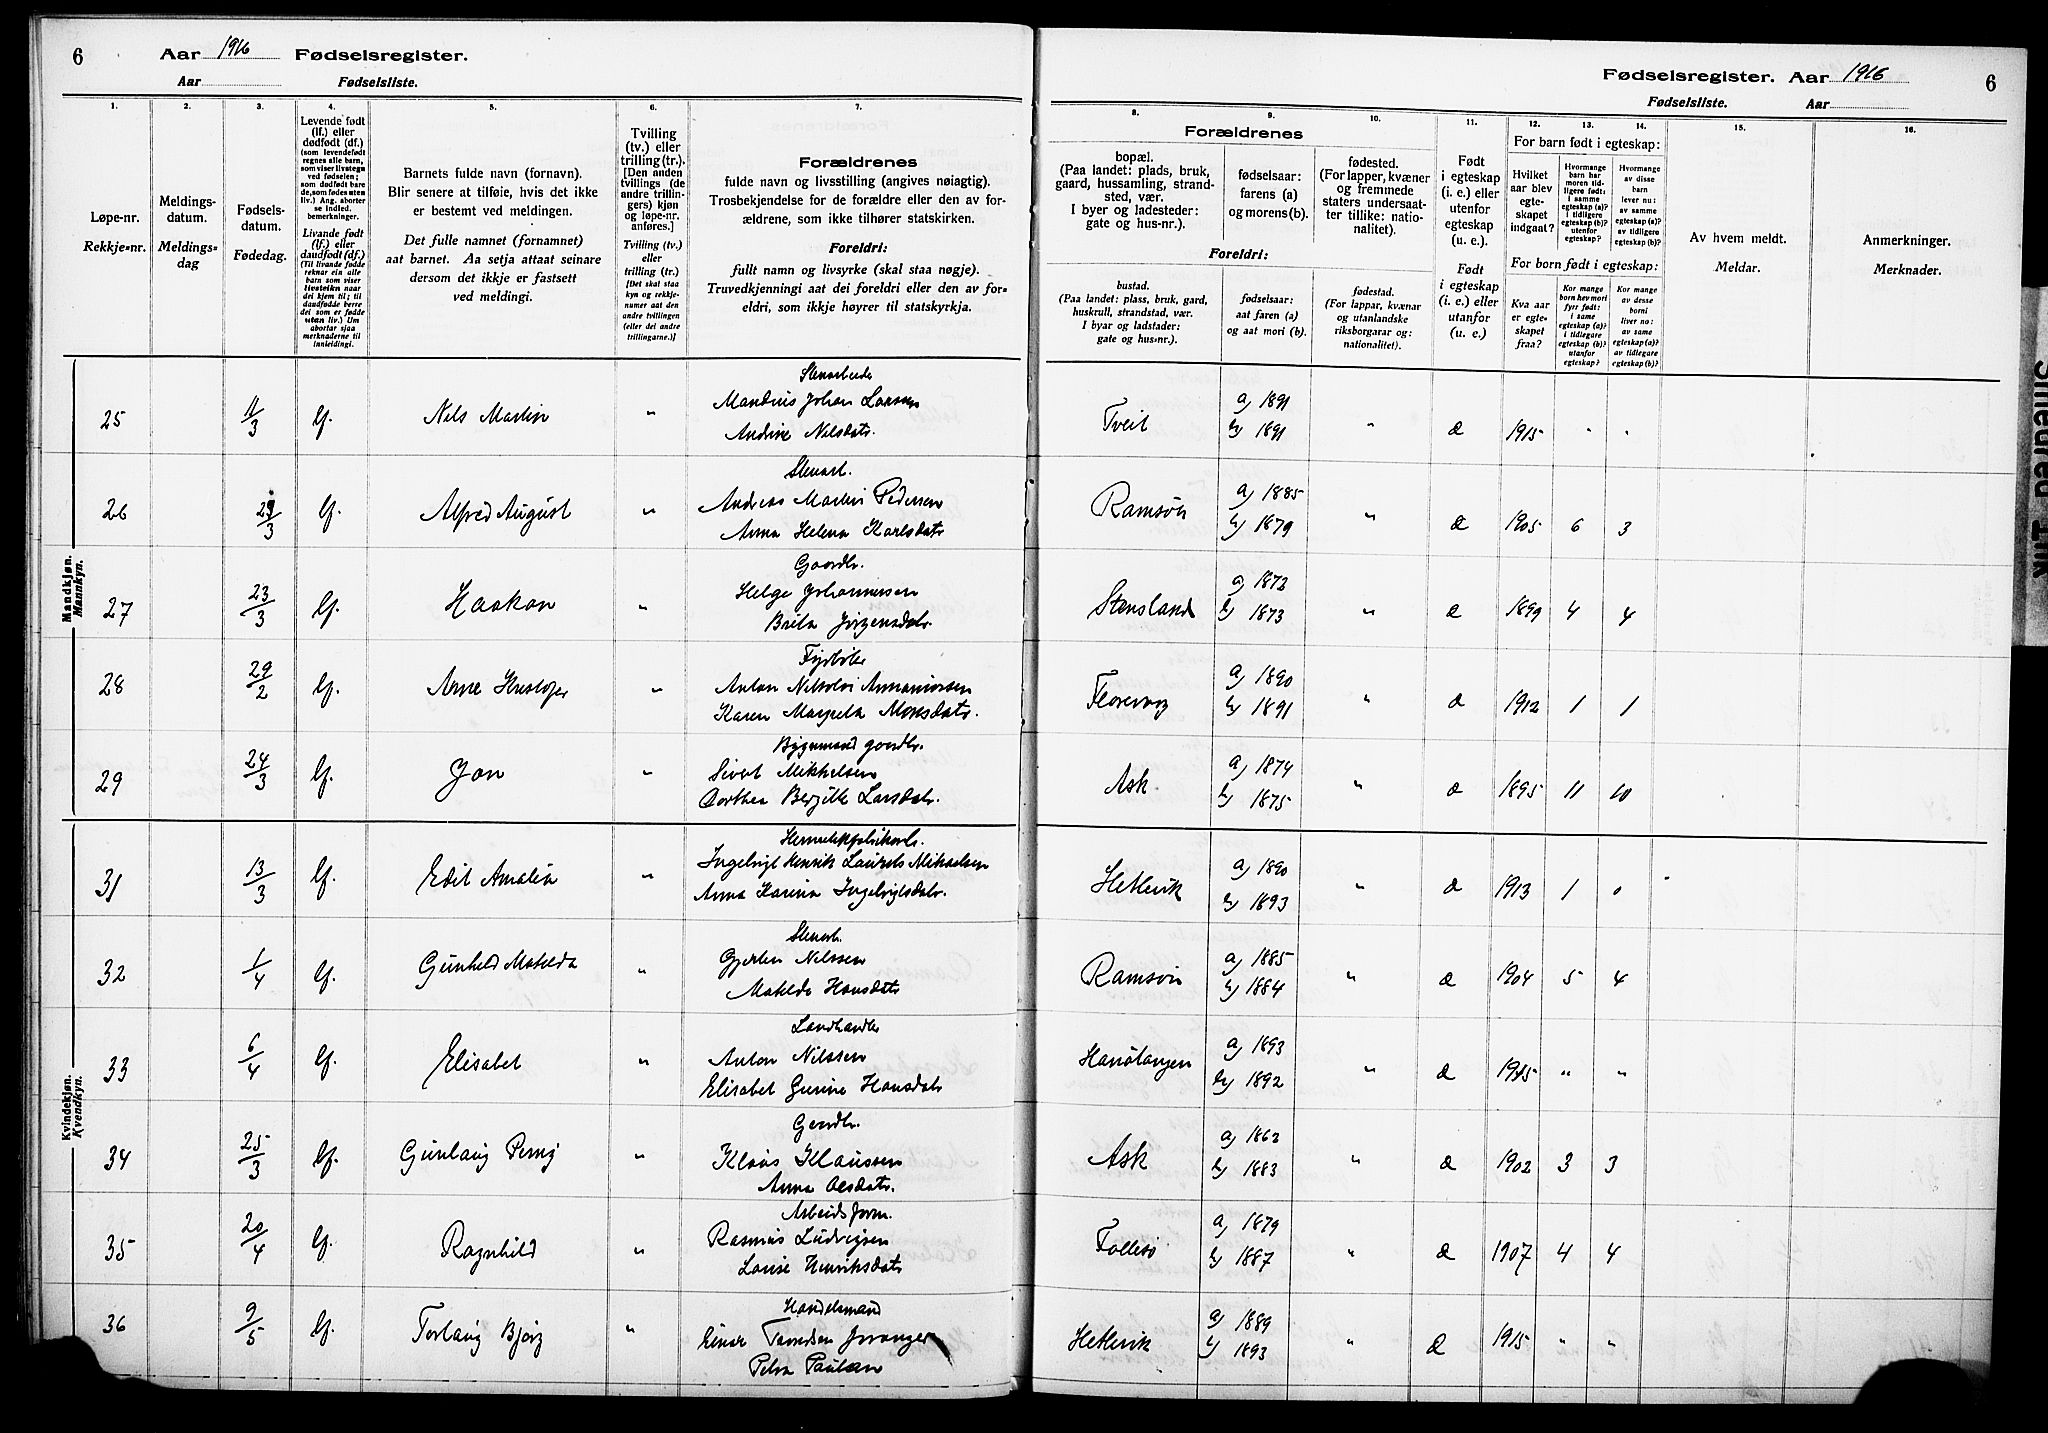 6 Aar 1916 Fødselsregister.
Aar Fødselsliste.
1. 2. 3. 4. 5. 6. 7.
Løpe-nr.
Rekkje-nr.
Meldings-
datum.
Meldings-
dag
Fødsels-
datum.
Fødedag.
Levende født
(lf.) eller
dødfødt (df.)
(som levendefødt
regnes alle barn,
som viser livstegn
ved fødselen;
som dødfødt bare
de, som fødes uten
liv.) Ang. aborter
se indled.
bemerkninger.
Livande født
(lf.) eller
daudfødt (df.)
(Til livande fødde
reknar ein alle
barn som viser
livsteikn naar
dei kjem til; til
daudfødde berre
dei som er fødde
utan liv.) Um
abortar sjaa
merknaderne til
innleidingi.
Barnets fulde navn (fornavn).
Blir senere at tilføie, hvis det ikke
er bestemt ved meldingen.
Det fulle namnet (fornamnet)
aat barnet. Aa setja attaat seinare
dersom det ikkje er fastsett
ved meldingi.
Tvilling
(tv.) eller
trilling (tr.).
[Den anden
tvillings (de
andre trillin-
gers) kjøn
og løpe-nr.
anføres.]
Tvilling (tv.)
eller
trilling (tr.)
[Det skal staa
kyn og rekkje-
numer aat den
andre tvillingen
(eller dei andre
trillingarne.)]
Forældrenes
fulde navn og livsstilling (angives nøiagtig).
Trosbekjendelse for de forældre eller den av for-
ældrene, som ikke tilhører statskirken.
Foreldri:
fullt namn og livsyrke (skal staa nøgje).
Truvedkjenningi aat dei foreldri eller den av for-
eldri, som ikkje høyrer til statskyrkja.
Mandkjøn.
Mannkyn.
25 11/3 lf. Nels Martin " Stenarbeide
Mandius Johan Larsen
Andrine Nilsdatr.
26 29/3 lf. Alfred August " Stenarb.
Andreas Martin Pedersen
Anna Helena Karlsdatr
27 23/3 lf. Haakon " Gaardbr.
Helge Johannesen
Brita Jørgensdatr.
28 29/2 lf. Arne Kristofer "
Anton Nikolai
Karen Margreta Monsdatr.
29 24/3 lf. Jon " Bygmand gaardbr.
Sivert Mikkelsen
Dorthea Bergitte Larsdatr.
Kvindekjøn.
Kvendkyn.
31 13/3 lf. Edit Amalia "
Ingebrigt Henrik Laurits Mikaelsen
Anna Karina Ingebrigtsdatr.
32 1/4 lf. Gunhild Matilda " Stenarb.
Gjertin Nilssen
Matilde Hansdatr
33 6/4 lf. Elisabet " Landhandler
Anton Nilssen
Elisabet Gurine Hansdatr
34 25/3 lf. Gunlaug " Gaardbr.
Klaus Klaussen
Anna Olsdatr.
35 20/4 lf. Ragnhild " Arbeidsform.
Rasmus Ludvigsen
Louise Henriksdatr
36 9/5 lf. Torlaug Bjørg " Handelsmand
Einar
Petra Paulsen
Fødselsregister. Aar 1916 6
Fødselsliste. Aar
8. 9. 10. 11. 12. 13. 14. 15. 16.
Forældrenes
bopæl.
(Paa landet: plads, bruk,
gaard, hussamling, strand-
sted, vær.
I byer og ladesteder:
gate og hus-nr.).
fødselsaar:
farens (a)
og morens (b).
fødested.
(For lapper, kvæner
og fremmede
staters undersaat-
ter tillike: natio-
nalitet).
Foreldri:
bustad.
(Paa landet: plass, bruk, gard,
huskrull, strandstad, vær.
I byar og ladstader:
gate og hus-nr.).
fødselsaar:
aat faren (a)
og aat mori (b).
fødestad.
(For lappar, kvænar
og utanlandske
riksborgarar og:
nationalitet).
Født
i egteskap
(i. e.) eller
utenfor
egteskap
(u. e.).
Født
i egteskap
(i. e.) eller
utanfor
(u. e.)
For barn født i egteskap:
Hvilket
aar blev
egte-
skapet
indgaat?
Hvormange
barn har
moren tid-
ligere født:
i samme
egteskap (a)?
i tidligere
egteskap (b)?
utenfor
egteskap?
Hvormange
av disse
barn
lever nu:
av samme
egteskap (a)?
av tidligere
egteskap (b)?
For born født i egteskap:
Kva aar
er egte-
skapet
fraa?
Kor mange
born hev mori
fyrr født:
i same
egteskap (a)?
i tidlegare
egteskap (b)?
utanfor
egteskap?
Kor mange
av desse
borni
liver no:
av same
egteskap (a)?
av tidlegare
egteskap (b)?
Av hvem meldt.
Meldar.
Anmerkninger.
Merknader.
Tveit a) 1891
b) 1891 " æ 1915 " "
Ramsøn a) 1885
b) 1879 " æ 1905 6 3
Stensland a) 1872
b) 1873 " æ 1899 4 4
Florevaag a) 1890
b) 1891 " æ 1912 1 1
Ask a) 1874
b) 1875 " æ 1895 11 10
Hetlevik a) 1890
b) 1893 " æ 1913 1 0
Ramsøn a) 1885
b) 1884 " æ 1904 5 4
Hanøtangen a) 1893
b) 1892 " æ 1915 " "
Ask a) 1862
b) 1883 " æ 1902 3 3
Follesø a) 1879
b) 1887 " æ 1907 4 4
Hetlevik a) 1889
b) 1893 " æ 1915 " "